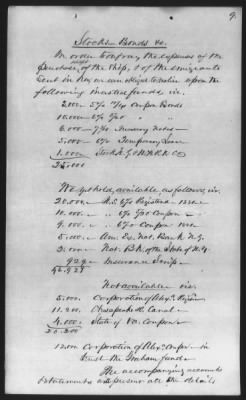 9.
Stocks Bonds &c.
In order to defray the expenses of the
purchase of the Ship, & of the emigrants
sent in her, we were obliged to take upon the
following invested funds viz:
2.000 5% 10/40 Coupon Bonds
10.000 6% 5/20 "
6.000 7 3/10 Treasury Notes
5.000 6% Temporary Loan
1.000 Stock R.R. Co
24.000
We yet hold, available, as follows, viz.
20.000 U.S. 6% Registered
10.000 " 6% 5/20 Coupon
9.000 " 6% Coupon
5.000 Am. Ex. Nat. Bank N.Y.
2.000 Nat. Bk. of the State of N.Y.
929 Insurance Scrip
46.929
Not available viz.
5.000 Corporation of Alexa.
11.200 Chesapeake Canal
4.000 State of Va. Coupon
20.200
12.000 Corporation of Alexa. Coupn. in
trust the Graham fund
The accompanying accounts
& statements will present all the details